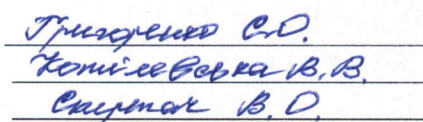 Григоренко С.О.
Копілевська В.В.
Скирток В.О.